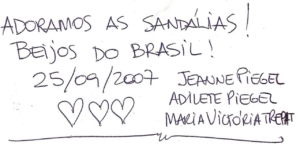 ADORAMOS AS SANDÁLIAS!
BEIJOS DO BRASIL!
25/09/2007 JEANNE PIEGEL
ADILETE PIEGEL
MARIA VICTÓRIA TREPAT